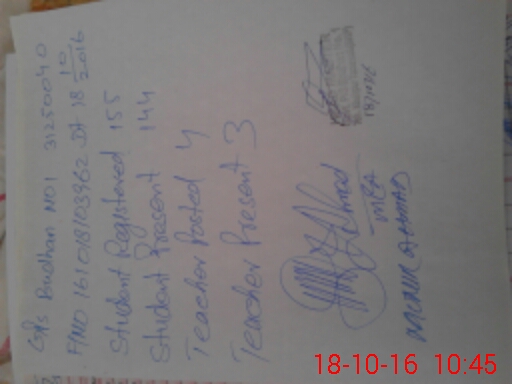 GPS Budhan NO1 31250040
F/NO 161018103962 Dt 18 10/2016
Student Registered 155
Student Present 144
Teacher Posted 4
Teacher Present 3
Ahmad
MEA
AHMAD
18/10/16
18-10-16 10:45